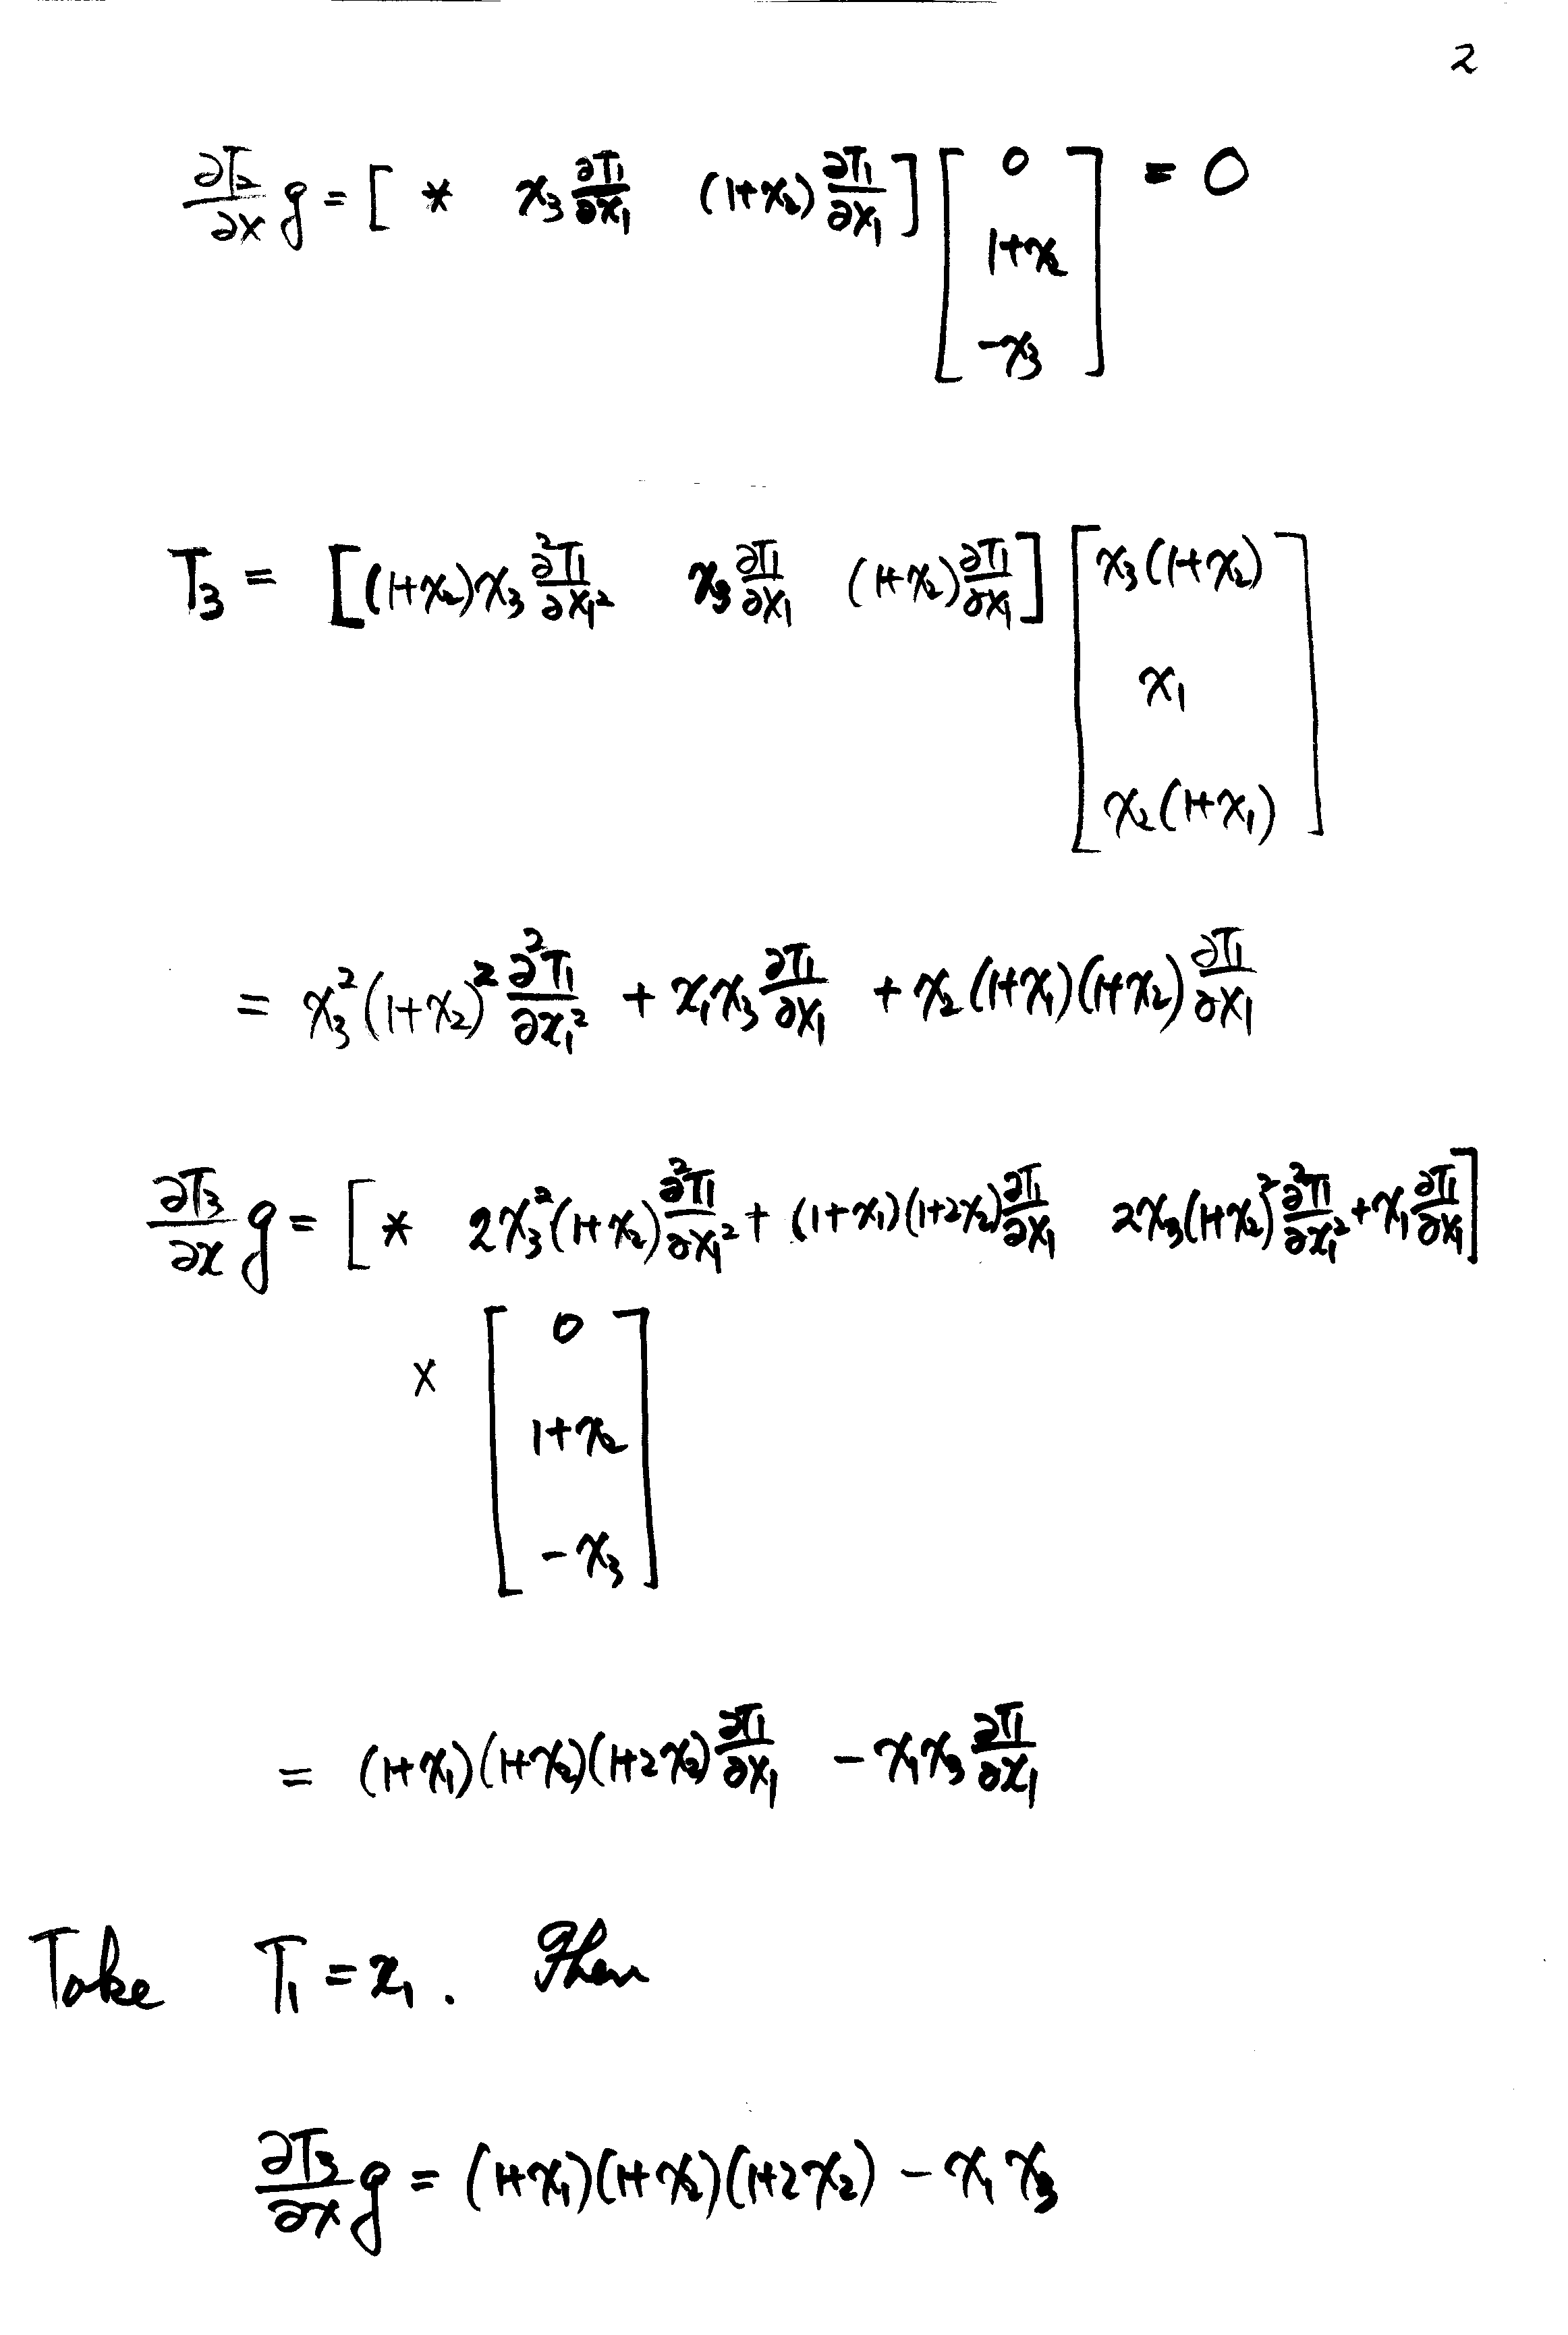 2
$\frac{\partial T_2}{\partial x} g = [\ * \quad x_3 \frac{\partial T_1}{\partial x_1} \quad (1+x_2) \frac{\partial T_1}{\partial x_1} ] \begin{bmatrix} 0 \\ 1+x_2 \\ -x_3 \end{bmatrix} = 0$
$T_3 = [ (1+x_2) x_3 \frac{\partial^2 T_1}{\partial x_1^2} \quad x_3 \frac{\partial T_1}{\partial x_1} \quad (1+x_2) \frac{\partial T_1}{\partial x_1} ] \begin{bmatrix} x_3(1+x_2) \\ x_1 \\ x_2(1+x_1) \end{bmatrix}$
$= x_3^2 (1+x_2)^2 \frac{\partial^2 T_1}{\partial x_1^2} + x_1 x_3 \frac{\partial T_1}{\partial x_1} + x_2 (1+x_1)(1+x_2) \frac{\partial T_1}{\partial x_1}$
$\frac{\partial T_3}{\partial x} g = [\ * \quad 2x_3^2 (1+x_2) \frac{\partial^2 T_1}{\partial x_1^2} + (1+x_1)(1+2x_2) \frac{\partial T_1}{\partial x_1} \quad 2x_3 (1+x_2)^2 \frac{\partial^2 T_1}{\partial x_1^2} + x_1 \frac{\partial T_1}{\partial x_1} ]$
$\times \begin{bmatrix} 0 \\ 1+x_2 \\ -x_3 \end{bmatrix}$
$= (1+x_1)(1+x_2)(1+2x_2) \frac{\partial T_1}{\partial x_1} - x_1 x_3 \frac{\partial T_1}{\partial x_1}$
Take $T_1 = x_1$. Then
$\frac{\partial T_3}{\partial x} g = (1+x_1)(1+x_2)(1+2x_2) - x_1 x_3$